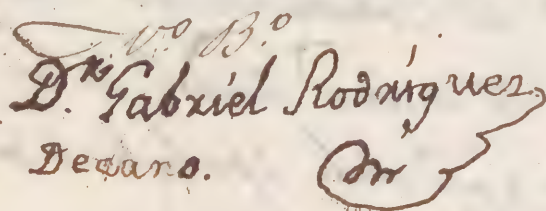 Vo. B.o
D.r Gabriel Rodriguez.
Decano.